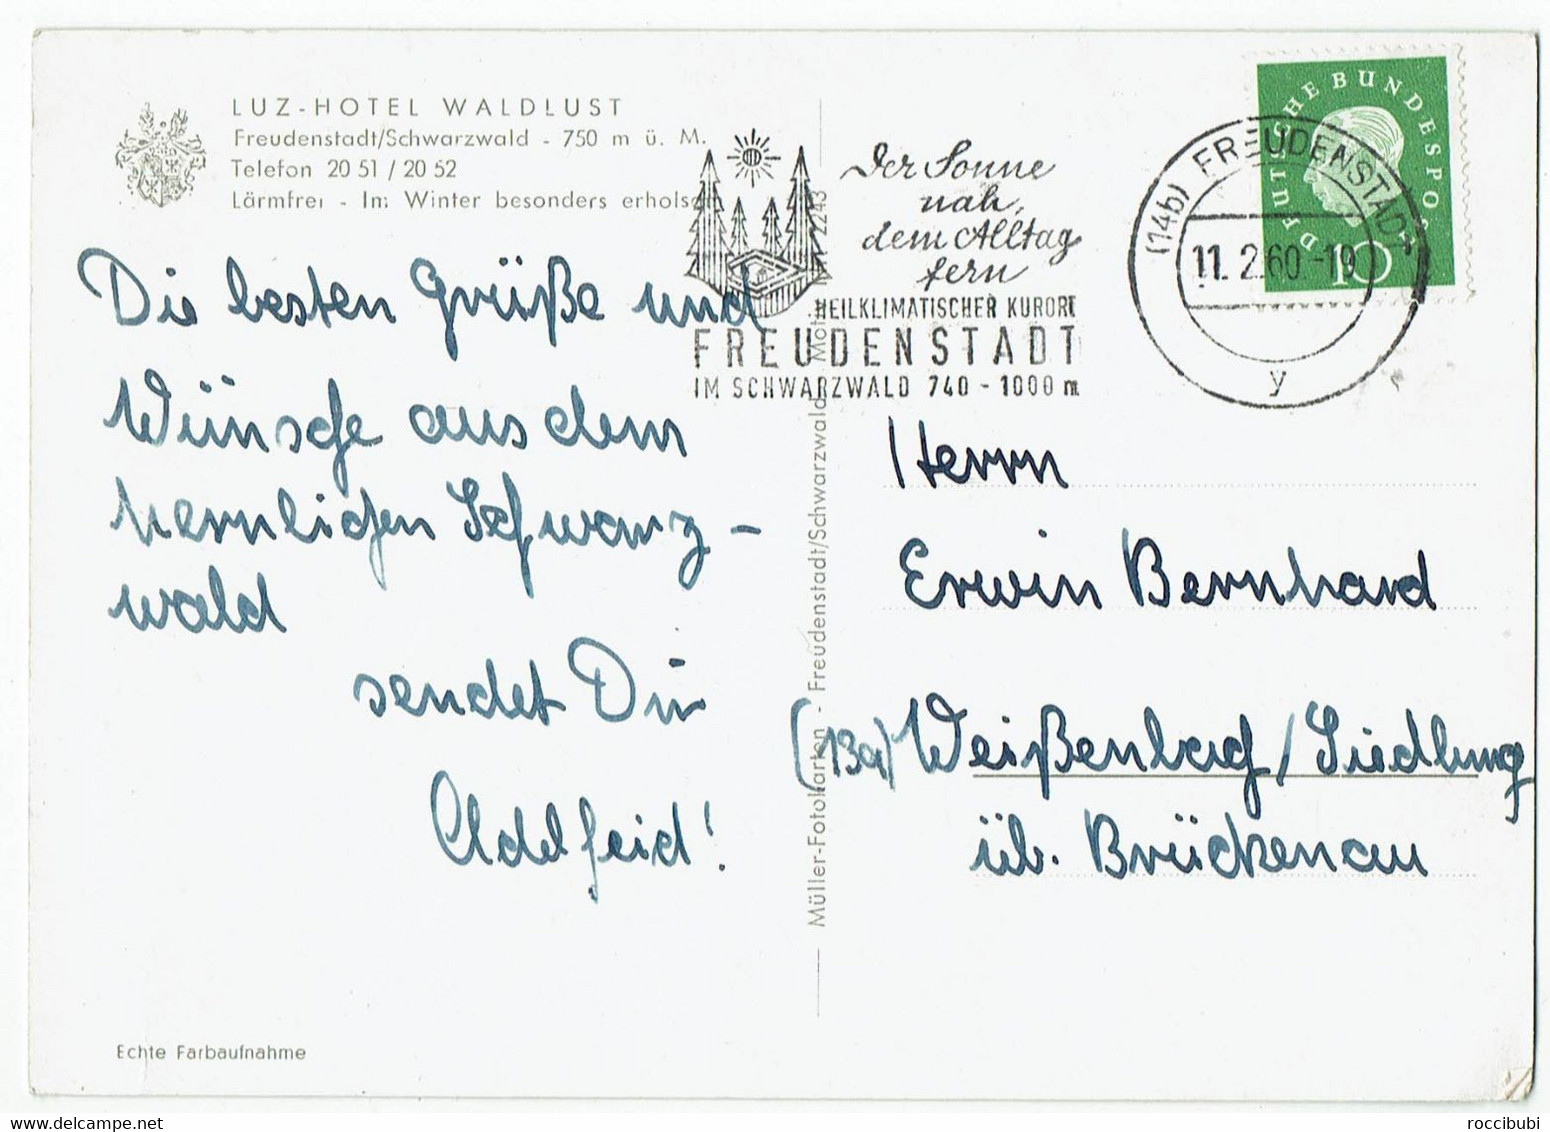 LUZ-HOTEL WALDLUST
Freudenstadt/Schwarzwald - 750 m ü. M.
Telefon 20 51 / 20 52
Lärmfrei - Im Winter besonders erholsam
Die besten Grüße und
Wünsche aus dem
herrlichen Schwarz-
wald
sendet Dir
Adelheid!
Echte Farbaufnahme
Müller-Fotokarten - Freudenstadt/Schwarzwald
2243
Der Sonne
nah,
dem Alltag
fern
HEILKLIMATISCHER KURORT
FREUDENSTADT
IM SCHWARZWALD 740 - 1000 m
(14b) FREUDENSTADT
11. 2. 60. -19
y
DEUTSCHE BUNDESPOST
10
Herrn
Erwin Bernhard
(13a) Weißenbach/Siedlung
üb. Brückenau
www.delcampe.net
roccibubi